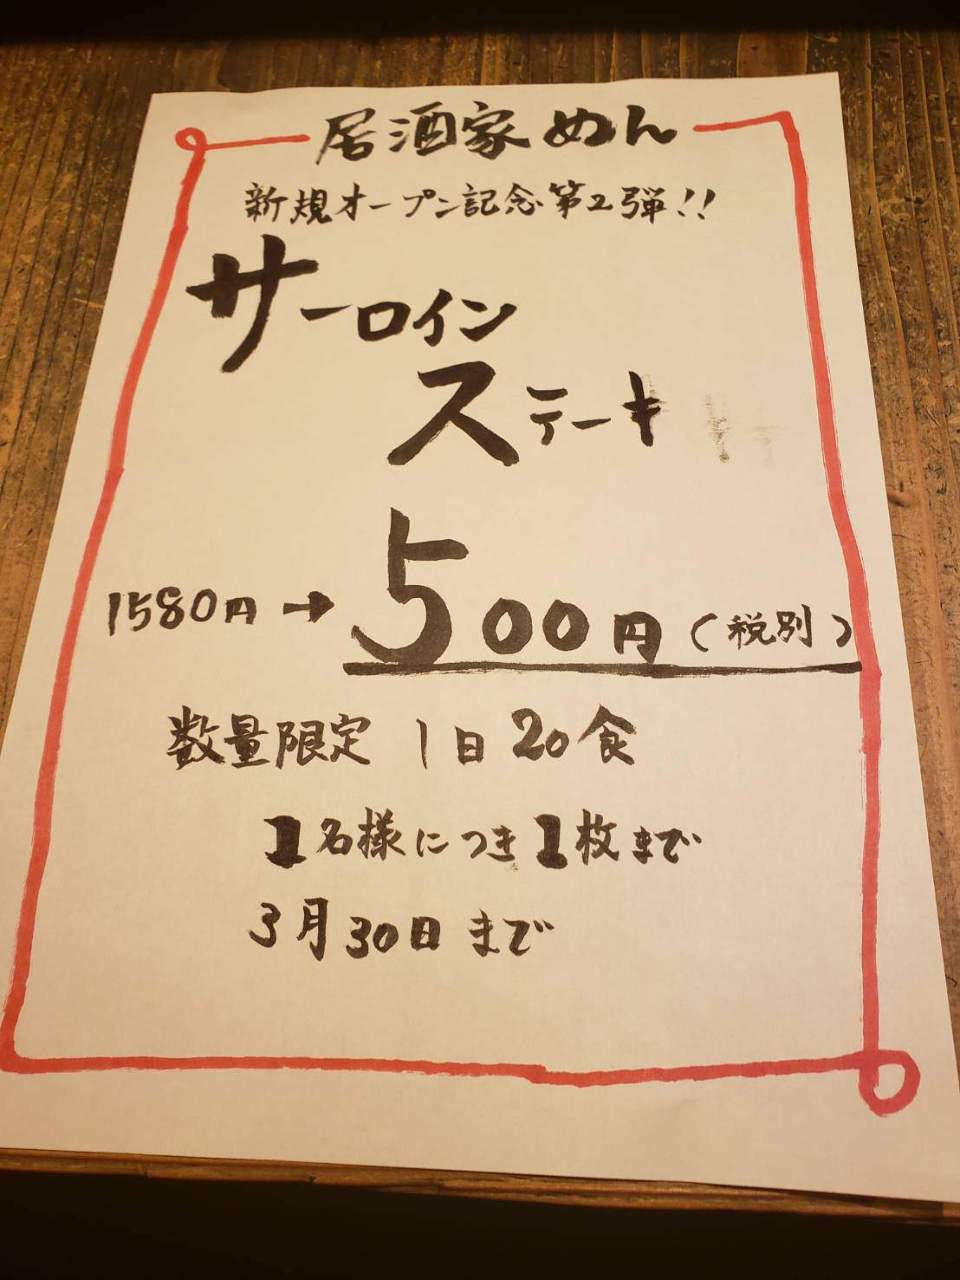 居酒家めん
新規オープン記念第2弾!!
サーロイン
ステーキ
1580円→500円(税別)
数量限定 1日20食
1名様につき1枚まで
3月30日まで